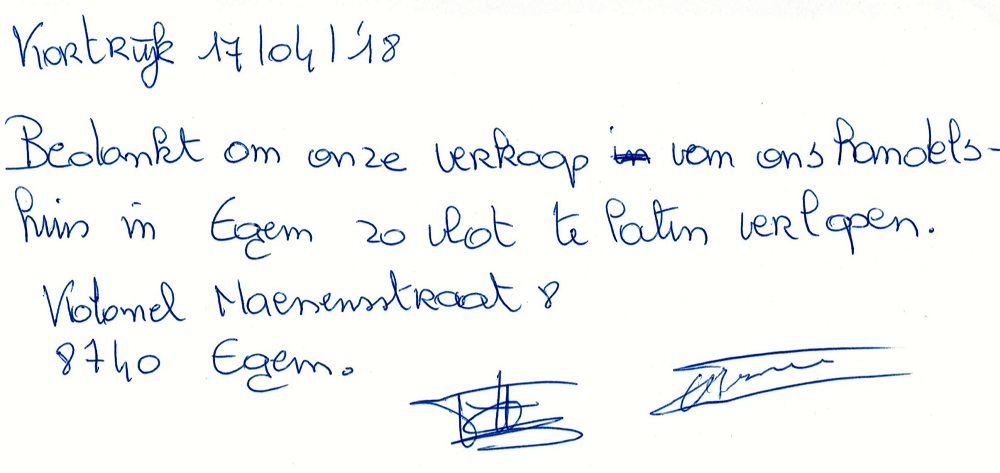 Kortrijk 17/04/'18
Bedankt om onze verkoop van ons handels-
huis in Egem zo vlot te laten verlopen.
Kolonel Naessensstraat 8
8740 Egem.